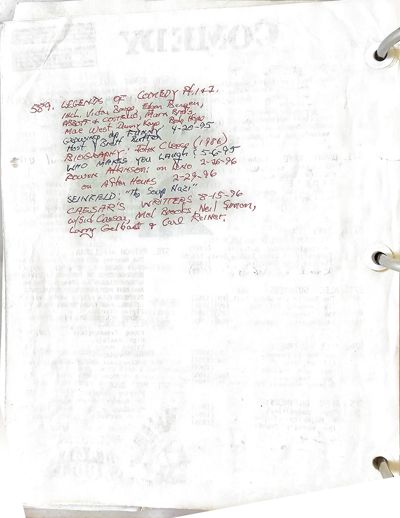 COMEDY
589. LEGENDS OF COMEDY Pt. 1 & 2.
Incl. Victor Borge, Edgar Bergen,
ABBOTT & COSTELLO, Marx Bros,
Mae West Danny Kaye Bob Hope
4-20-95
Host Brett Butler
BIOGRAPHY: John Cleese (1986)
WHO MAKES YOU LAUGH? 5-6-95
ROWAN ATKINSON: on LENO 2-26-96
on After Hours 2-29-96
SEINFELD: "The Soup Nazi"
CAESAR'S WRITERS 8-15-96
w/Sid Caesar, Mel Brooks, Neil Simon,
Larry Gelbart & Carl Reiner.